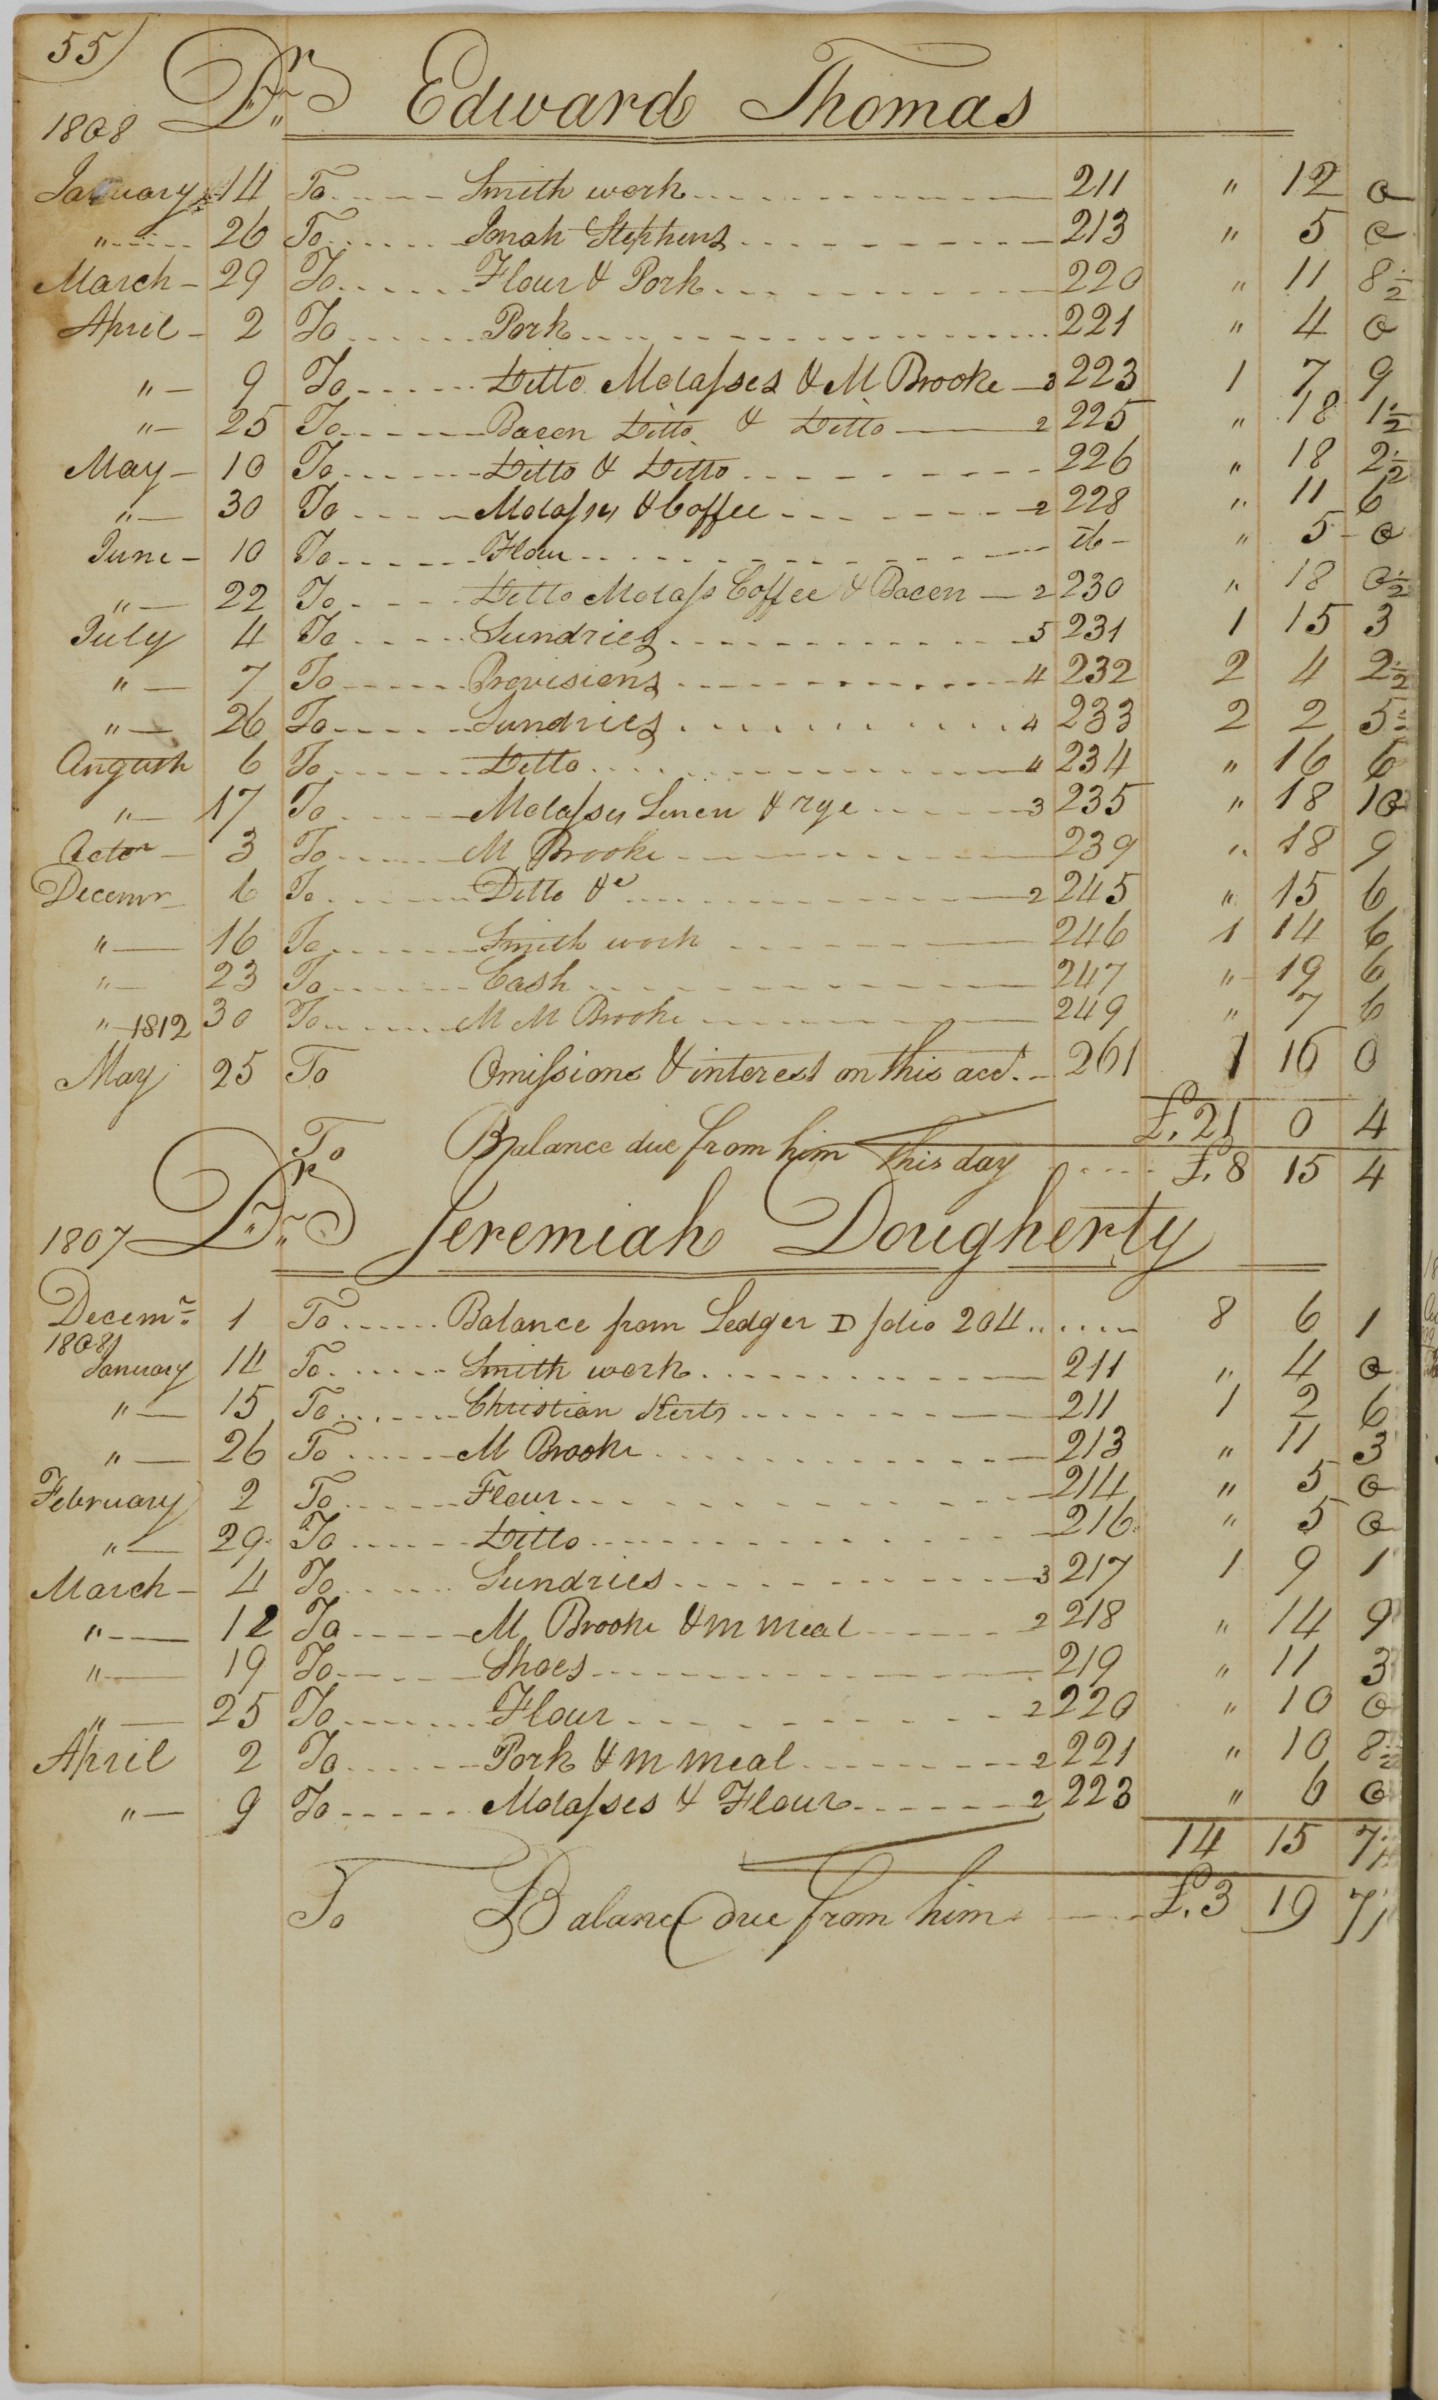 55
Dr. Edward Thomas
1808
January 14 To Smith work 211 " 12 0
" 26 To Jonah Stephens 213 " 5 0
March 29 To Flour & Pork 220 " 11 8½
April 2 To Pork 221 " 4 0
" 9 To Ditto Molasses & M Brooke 3 223 1 7 9
" 25 To Bacon Ditto & Ditto 2 225 " 18 1½
May 10 To Ditto & Ditto 226 " 18 2½
" 30 To Molasses & Coffee 2 228 " 11 6
June 10 To Flour ib " 5 0
" 22 To Ditto Molass Coffee & Bacon 2 230 " 18 0½
July 4 To Sundries 5 231 1 15 3
" 7 To Provisions 4 232 2 4 2½
" 26 To Sundries 4 233 2 2 5
August 6 To Ditto 4 234 " 16 6
" 17 To Molasses Linen & rye 3 235 " 18 10
Octor 3 To M Brooke 239 " 18 9
Decemr 6 To Ditto &c 2 245 " 15 6
" 16 To Smith work 246 1 14 6
" 23 To Cash 247 " 19 6
" 30 To M M Brooke 249 " 7 6
1812
May 25 To Omissions & interest on this acct. 261 1 16 0
£.21 0 4
To Balance due from him this day £.8 15 4
1807 Dr. Jeremiah Dougherty
Decemr. 1 To Balance from Ledger D folio 204 8 6 1
1808
January 14 To Smith work 211 " 4 0
" 15 To Christian Kerts 211 1 2 6
" 26 To M Brooke 213 " 11 3
February 2 To Flour 214 " 5 0
" 29 To Ditto 216 " 5 0
March 4 To Sundries 3 217 1 9 1
" 12 To M Brooke & m meal 2 218 " 14 9
" 19 To Shoes 219 " 11 3
" 25 To Flour 2 220 " 10 0
April 2 To Pork & m meal 2 221 " 10 8½
" 9 To Molasses & Flour 2 223 " 6 0
14 15 7
To Balance due from him £.3 19 7